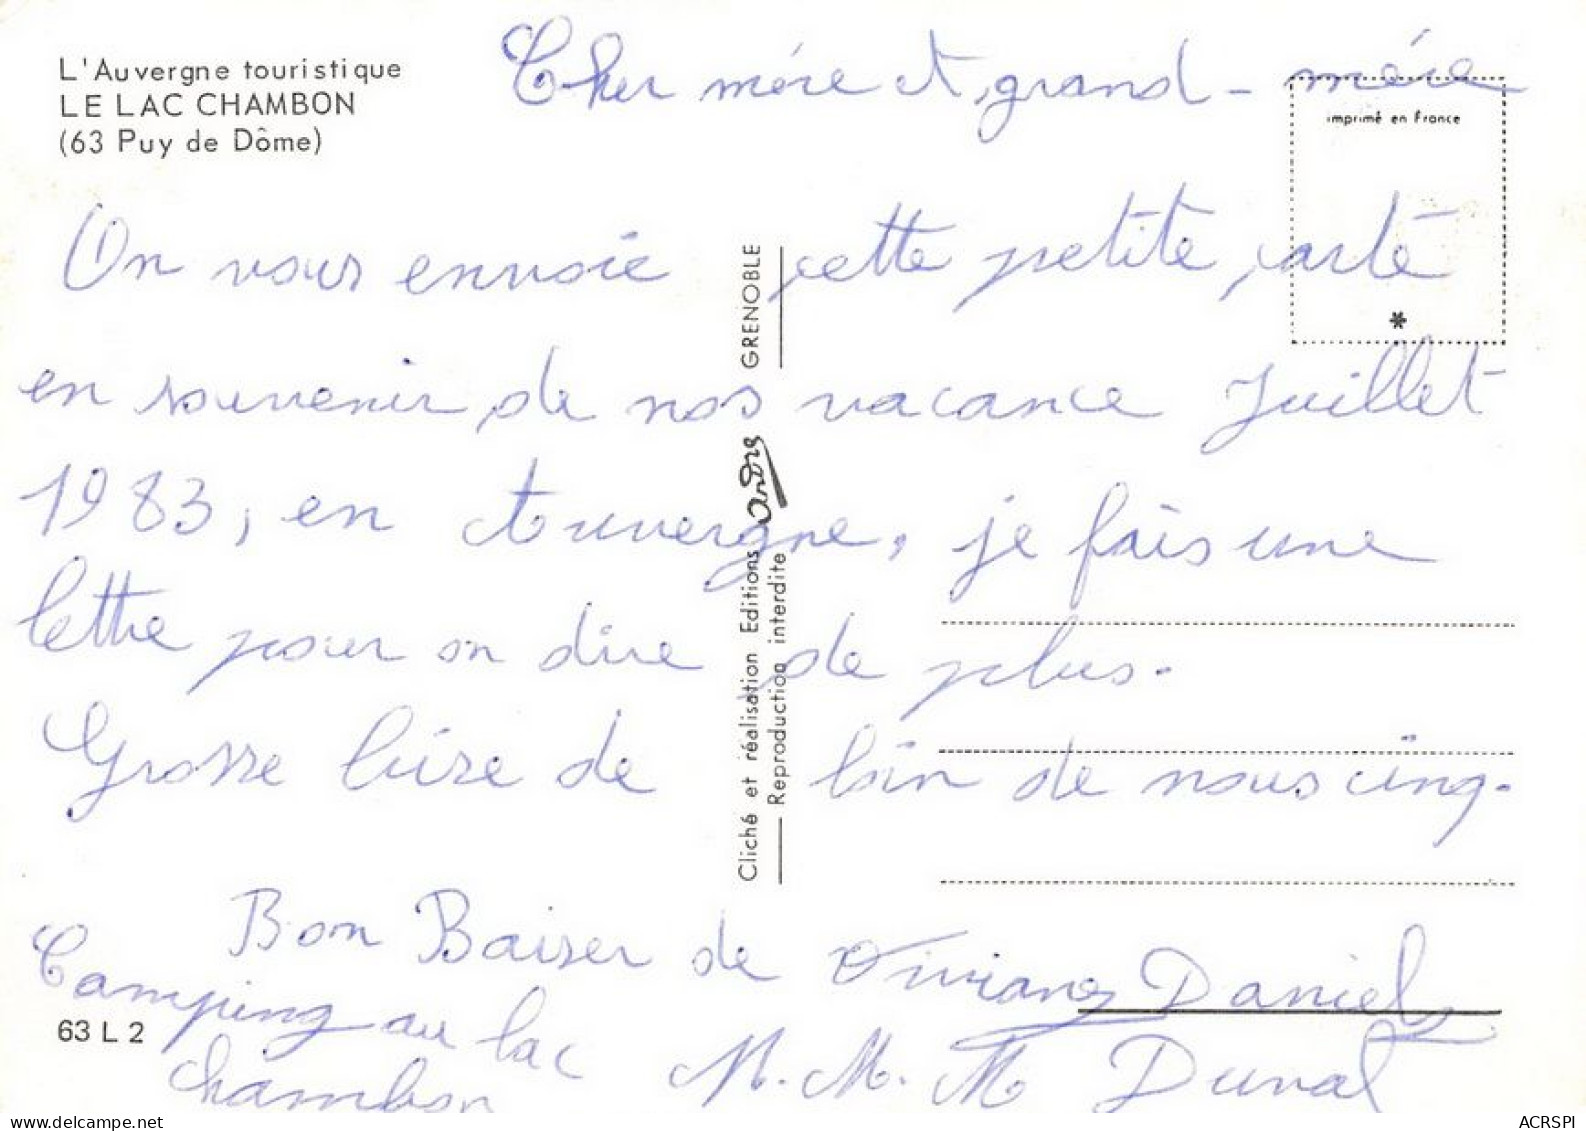 L'Auvergne touristique
LE LAC CHAMBON
(63 Puy de Dôme)
Cher mére et grand-mére
imprimé en France
On vous envoie cette petite carte
en souvenir de nos vacance Juillet
1983, en Auvergne, je fais une
lettre pour on dire de plus.
Grosse bise de loin de nous cinq.
Bon Baiser de Viviane Daniel
Camping au lac
chambon
M. M. M Duval
63 L 2
Cliché et réalisation Editions André GRENOBLE
Reproduction interdite
ACRSPI